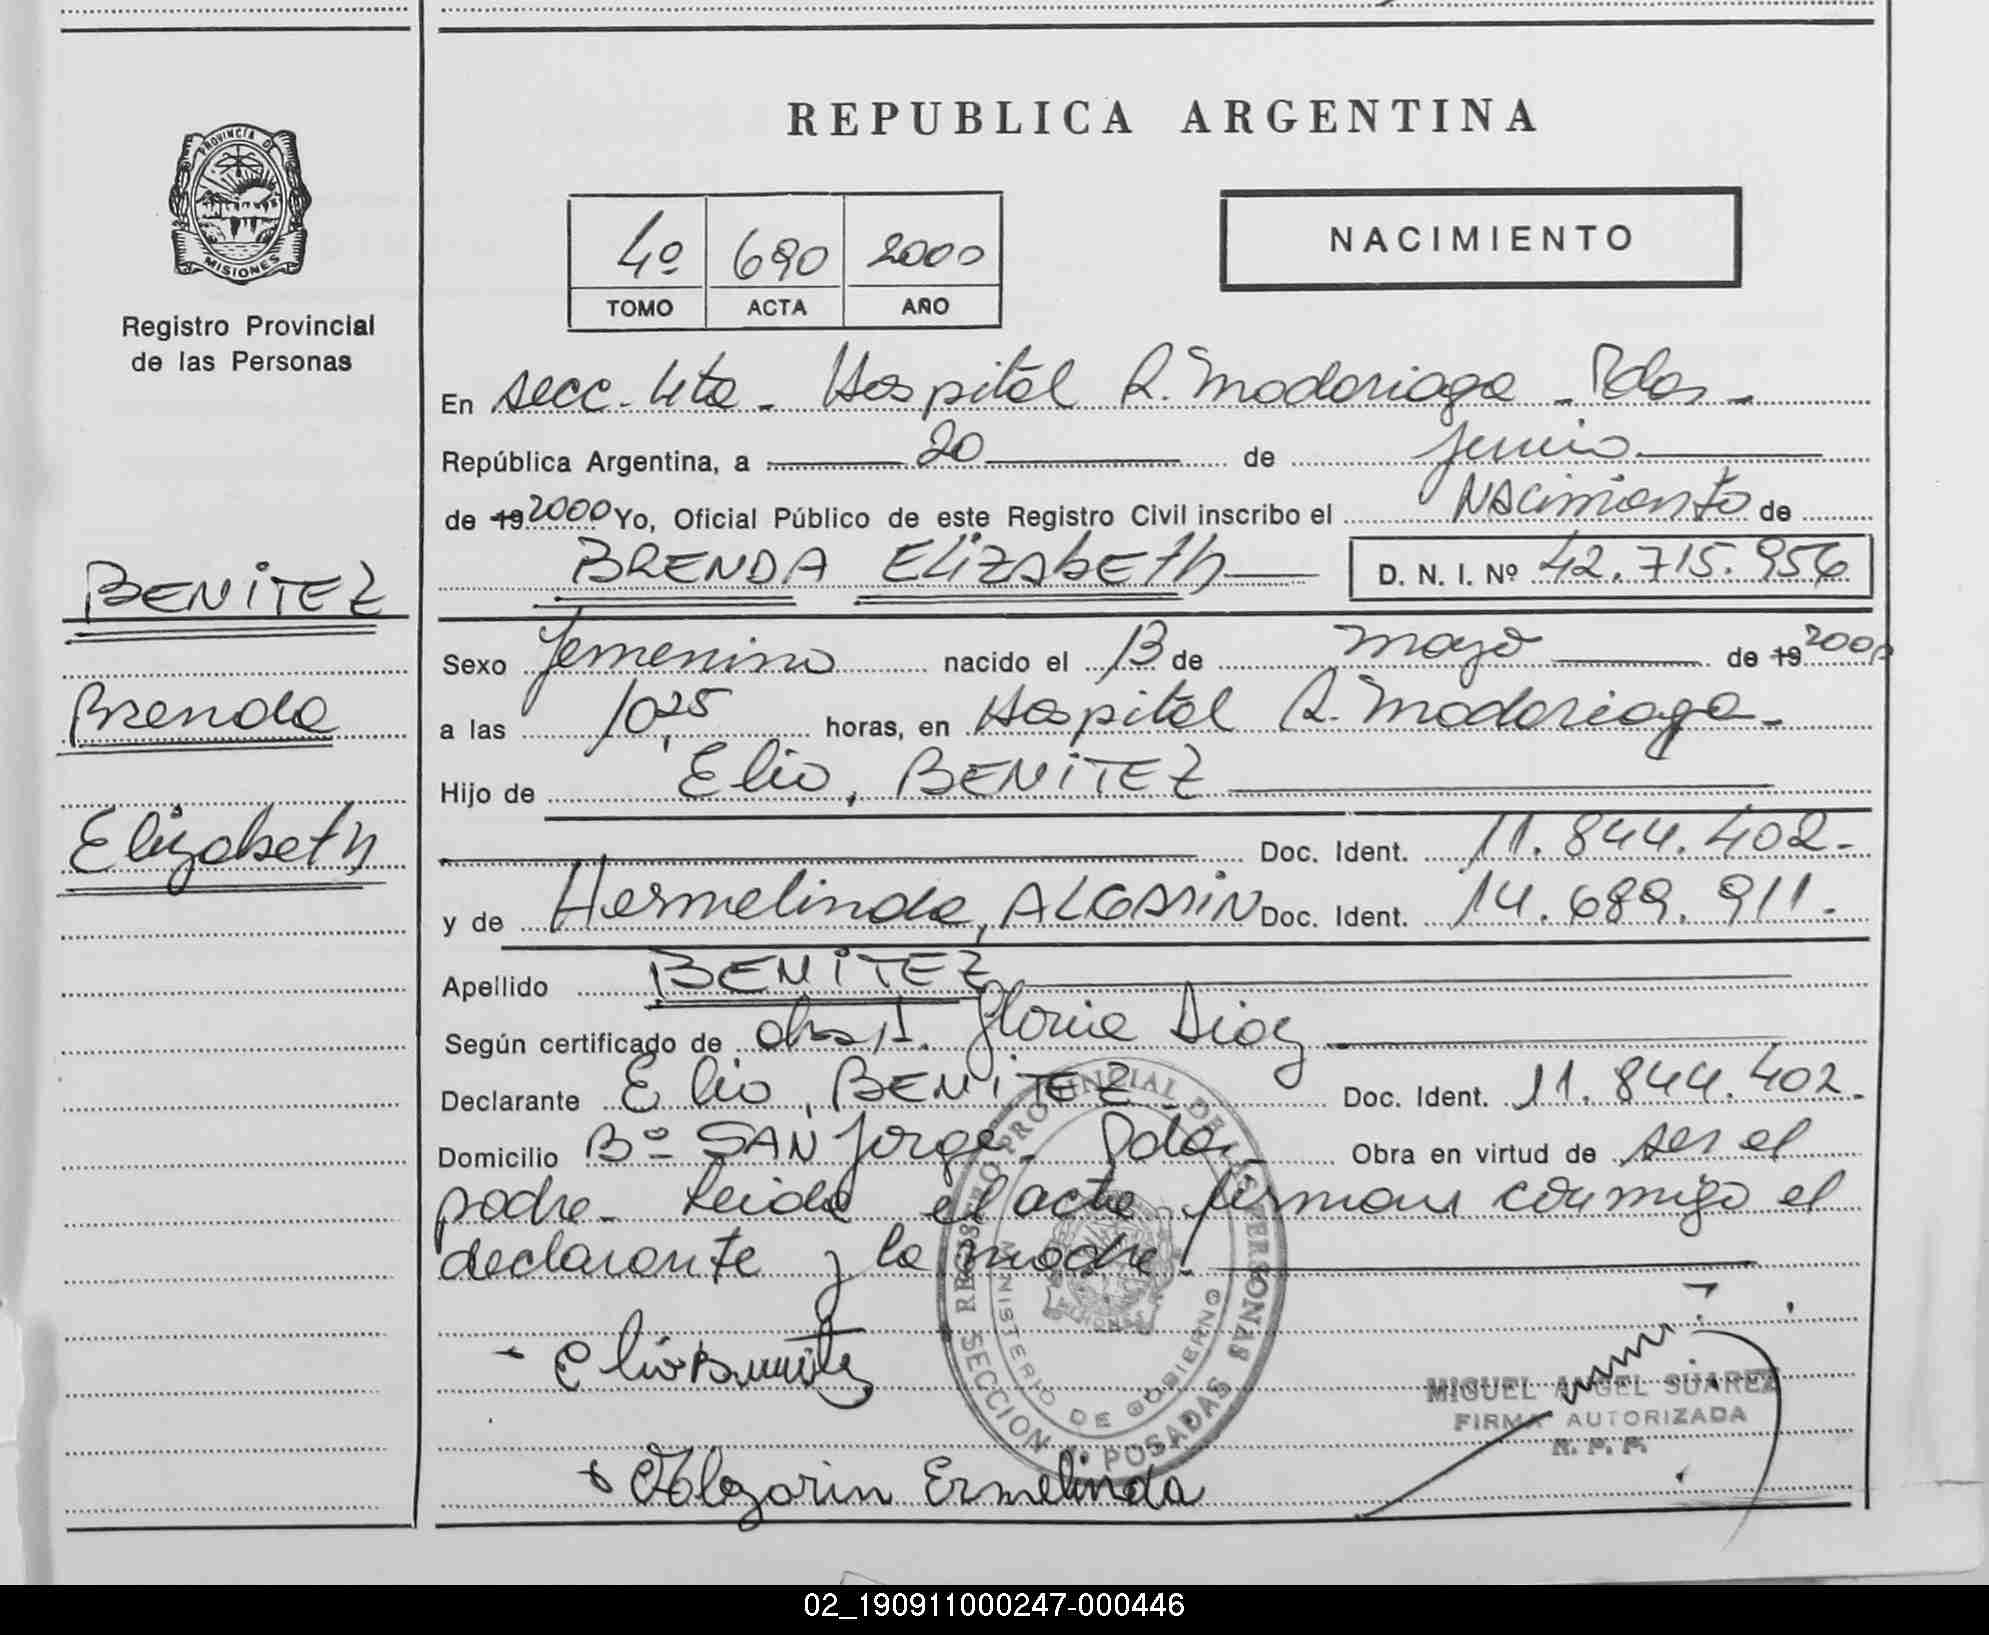 PROVINCIA DE
MISIONES
Registro Provincial
de las Personas
BENITEZ
Brenda
Elizabeth
REPUBLICA ARGENTINA
4º 690 2000
TOMO ACTA AÑO
NACIMIENTO
En secc. 4ta - Hospital R. Madariaga - Pdas -
República Argentina, a 20 de junio
de 19 2000 Yo, Oficial Público de este Registro Civil inscribo el Nacimiento de
BRENDA ELIZAbETh D. N. I. Nº 42.715.956
Sexo femenino nacido el 13 de mayo de 19 2000
a las 10,25 horas, en Hospital R. Madariaga -
Hijo de Elio, BENITEZ
Doc. Ident. 11.844.402.-
y de Hermelinda, ALGARIN Doc. Ident. 14.689.911.-
Apellido BENITEZ
Según certificado de obst. Gloria Diaz
Declarante Elio, BENITEZ - Doc. Ident. 11.844.402.-
Domicilio Bº SAN Jorge - Pdas - Obra en virtud de ser el
padre - Leida el acta firman conmigo el
declarante y la madre.
REGISTRO PROVINCIAL DE LAS PERSONAS
MINISTERIO DE GOBIERNO
MISIONES
SECCION 4ª POSADAS
Elio Benitez
MIGUEL ANGEL SUAREZ
FIRMA AUTORIZADA
R. P. P.
Algarin Ermelinda
02_190911000247-000446